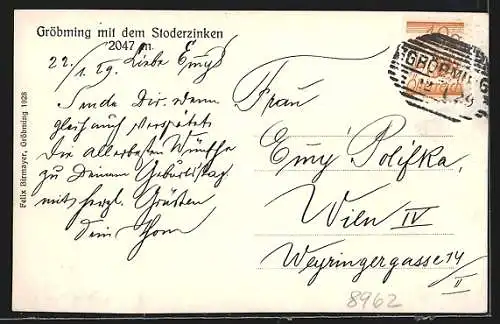 Gröbming mit dem Stoderzinken
2047 m.
22./1.29. Liebe Emy!
Sende Dir, wenn
gleich auch verspätet
die allerbesten Wünsche
zu Deinem Geburtstag
mit herzl. Grüßen
Dein
Frau
Emy Polifka,
Wien IV
Weyringergasse 14
II
GRÖBMING
Felix Birmayer, Gröbming 1928
8962